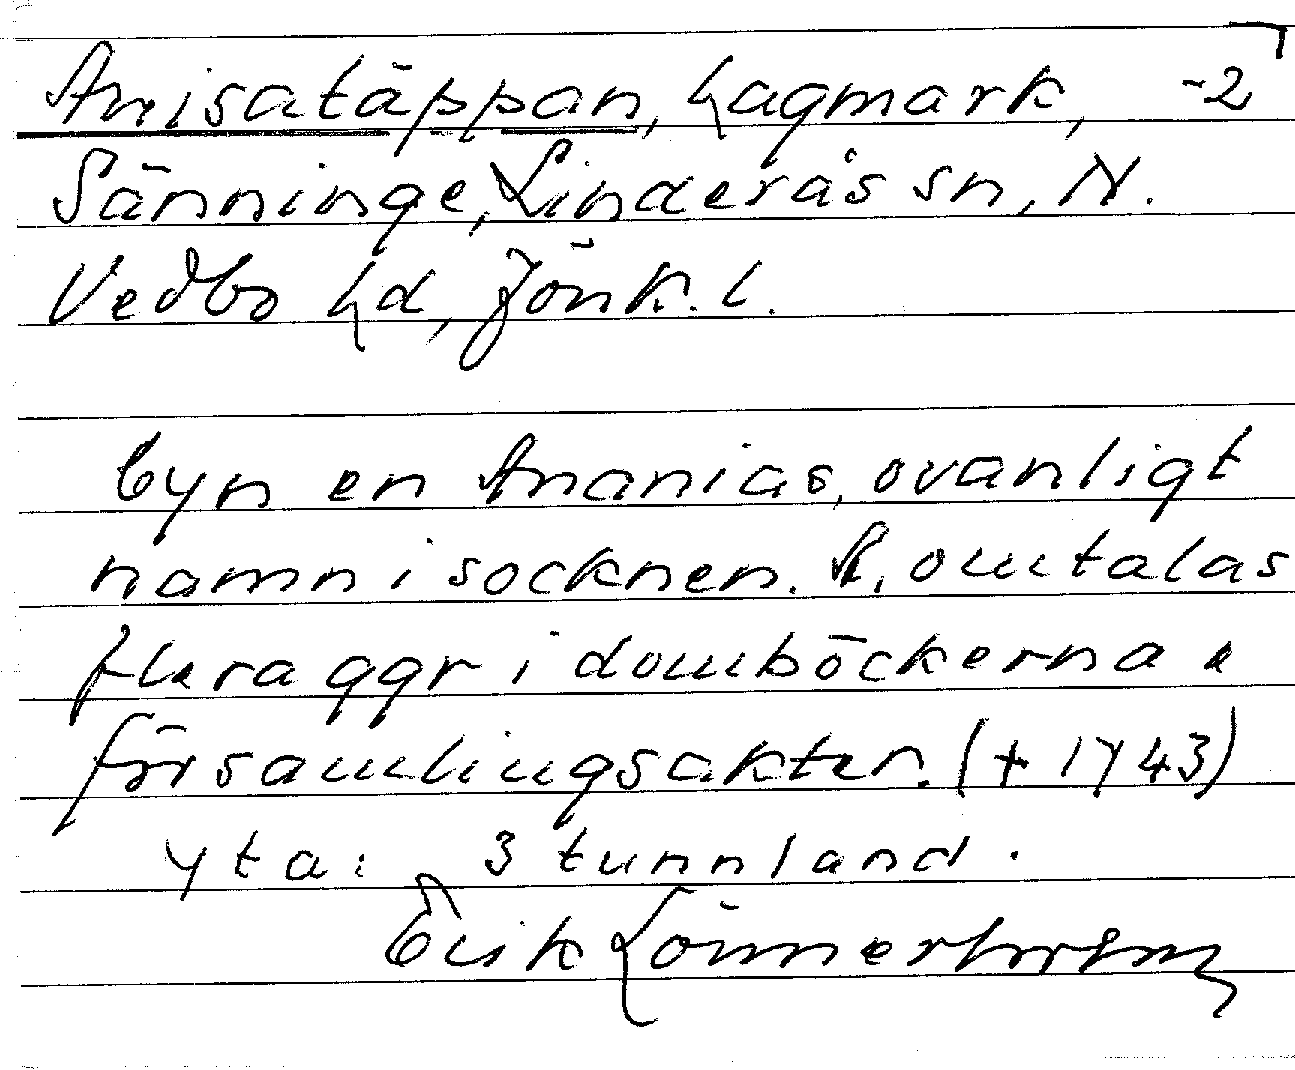 Anisatäppan, hagmark, -2
Sänninge, Linderås sn, N.
Vedbo hd, Jönk. l.
byn en Ananias, ovanligt
namn i socknen. A. omtalas
flera ggr i domböckerna &
församlingsakter. (+ 1743)
yta: 3 tunnland.
Erik Lönnerholm